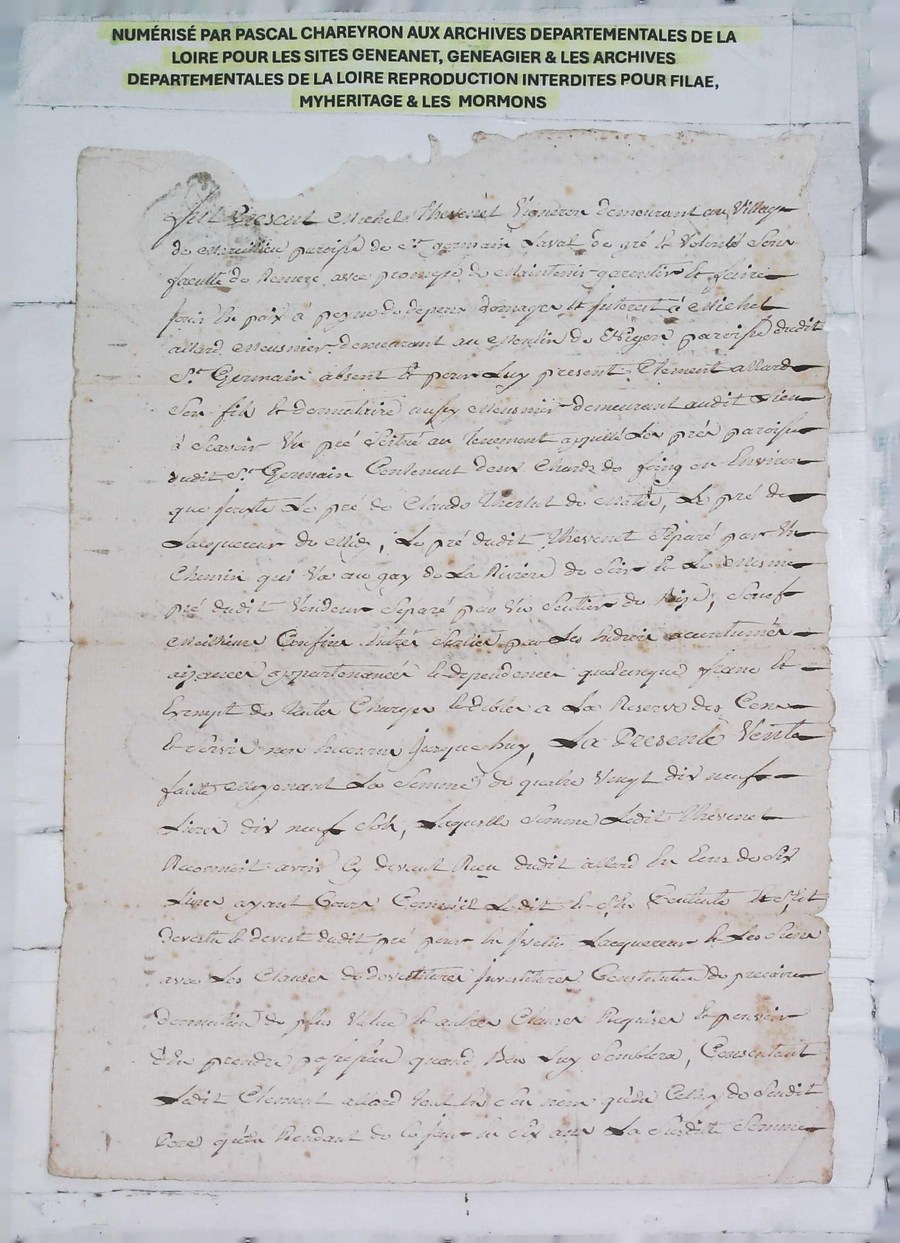 NUMÉRISÉ PAR PASCAL CHAREYRON AUX ARCHIVES DEPARTEMENTALES DE LA
LOIRE POUR LES SITES GENEANET, GENEAGIER & LES ARCHIVES
DEPARTEMENTALES DE LA LOIRE REPRODUCTION INTERDITES POUR FILAE,
MYHERITAGE & LES MORMONS
Fut Present Michel Thevenet Vigneron demeurant au Village
de paroisse de St germain Laval de gré et Volonté Sous
faculté de Remeré, avec promesse de Maintenir garentir et faire
jouir en paix à peyne de depens domages et Interest à Michel
allard Meusnier demeurant au Moulin de paroisse dudit
St Germain absent et pour Luy present Clement allard
Son fils et donnataire aussy Meusnier demeurant audit Lieu
à Scavoir Un pré Scitué au tenement appellé Les prés paroisse
dudit St Germain Contenant deux Chards de foing ou Environ
que jouxte Le pré de Claude de Matin, Le pré de
Lacquereur de Midy, Le pré dudit Thevenet Separé par Un
Chemin qui Va au gay de La Riviere de Soir et Le Mesme
pré dudit Vendeur Separé par Un Sentier de Bize, Sauf
Meilleurs Confins Entrés par Les Endroits acoutumés
aizances appartenances et dependences quelconque franc et
Exempt de toutes Charges et debtes a La Reserve des Cens
et Servis non Encourus jusquehuy, La Presente Vente
faitte Moyenant La Somme de quatre Vingt dix neuf
Livres dix neuf Sols, Laquelle Somme Ledit Thevenet
Reconnoit avoir Cy devant Receu dudit allard En Ecus de Six
Livres ayant Cours Ledit
devestu et devest dudit pré pour En Lacquereur et Les Siens
avec Les Clauses de devestitures Investitures Constitution de precaire
donnation de plus Value et autres Clauses Requises et pouvoir
d'En prendre possession quand Bon Luy Semblera, Consentant
Ledit Clement allard tant En Son nom qu'en Celluy de Sondit
Pere qu'en Rendant de Ce jour en Six ans La Susditte Somme